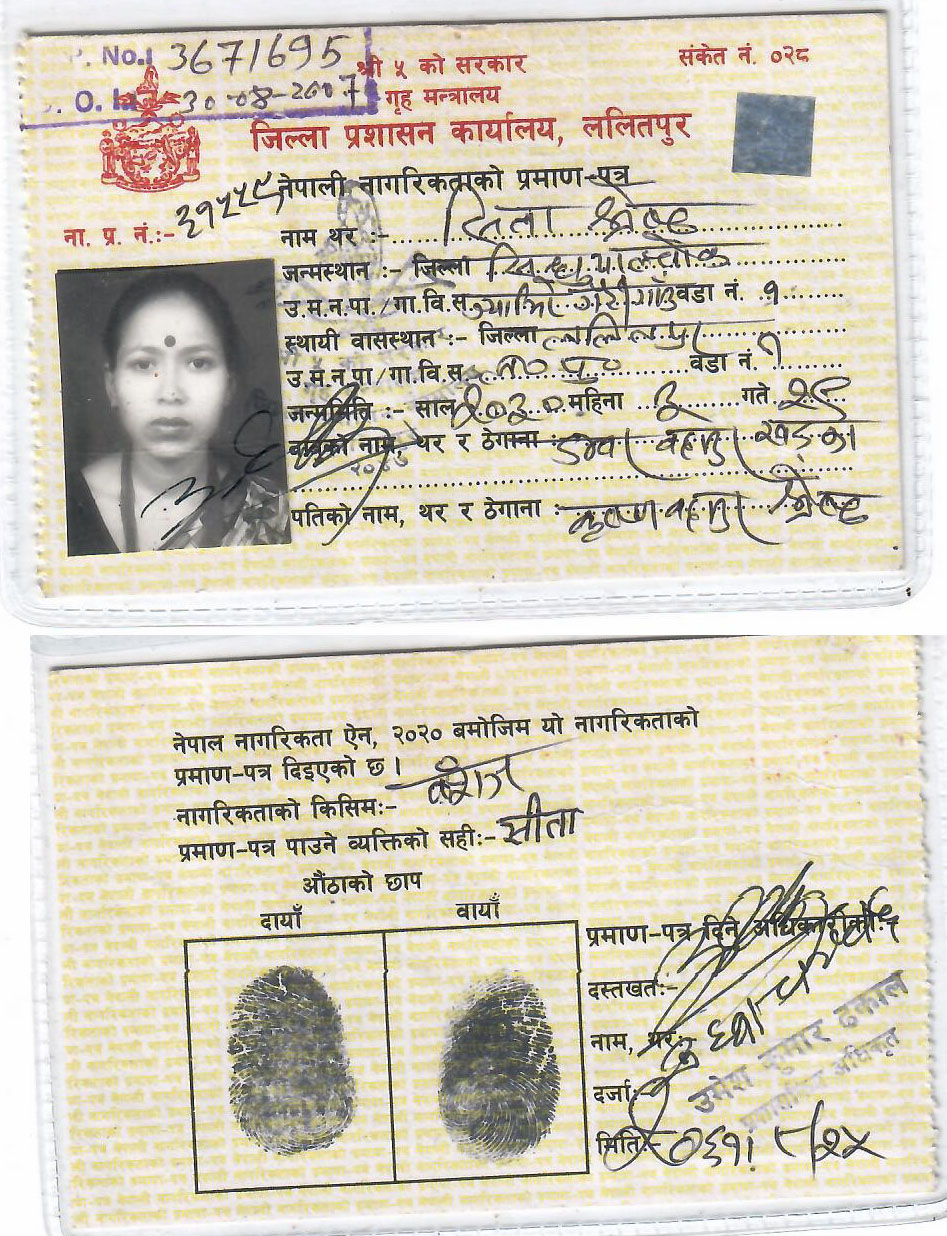 P. No. 3671695
30-08-2007
श्री ५ को सरकार
संकेत नं. ०२८
गृह मन्त्रालय
जिल्ला प्रशासन कार्यालय, ललितपुर
नेपाली नागरिकताको प्रमाण-पत्र
ना. प्र. नं.:-
नाम थर :- श्रेष्ठ
जन्मस्थान :- जिल्ला
उ.म.न.पा./गा.वि.स. वडा नं. १
स्थायी वासस्थान :- जिल्ला ललितपुर
उ.म.न.पा/गा.वि.स. वडा नं. १
जन्ममिति :- साल २०३० महिना गते २९
बाबुको नाम, थर र ठेगाना : बहादुर खड्का
पतिको नाम, थर र ठेगाना : कृष्ण बहादुर श्रेष्ठ
नेपाल नागरिकता ऐन, २०२० बमोजिम यो नागरिकताको
प्रमाण-पत्र दिइएको छ।
नागरिकताको किसिम:- वंशज
प्रमाण-पत्र पाउने व्यक्तिको सही:- सीता
औंठाको छाप
दायाँ
वायाँ
प्रमाण-पत्र दिने अधिकारीको:-
दस्तखत:-
नाम, थर:
उमेश कुमार ढकाल
दर्जा:
प्रशासकीय अधिकृत
मिति: २०६१।८/२५